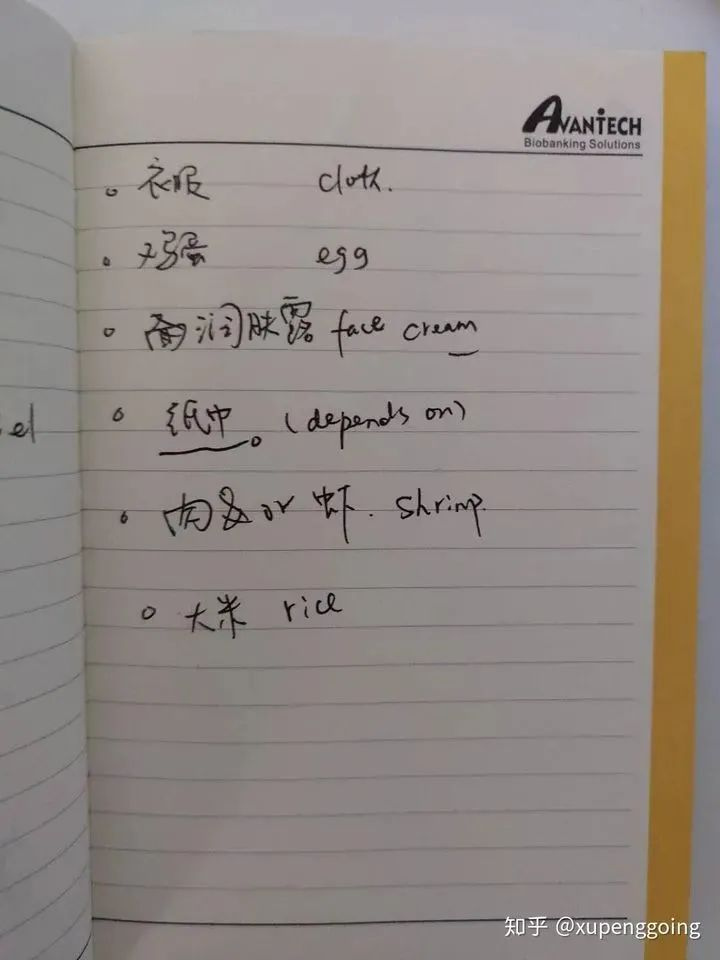 AVANTECH
Biobanking Solutions
衣服 cloth.
鸡蛋 egg
润肤露 face cream
el
纸巾。(depends on)
肉 or 虾. shrimp.
大米 rice
知乎 @xupenggoing